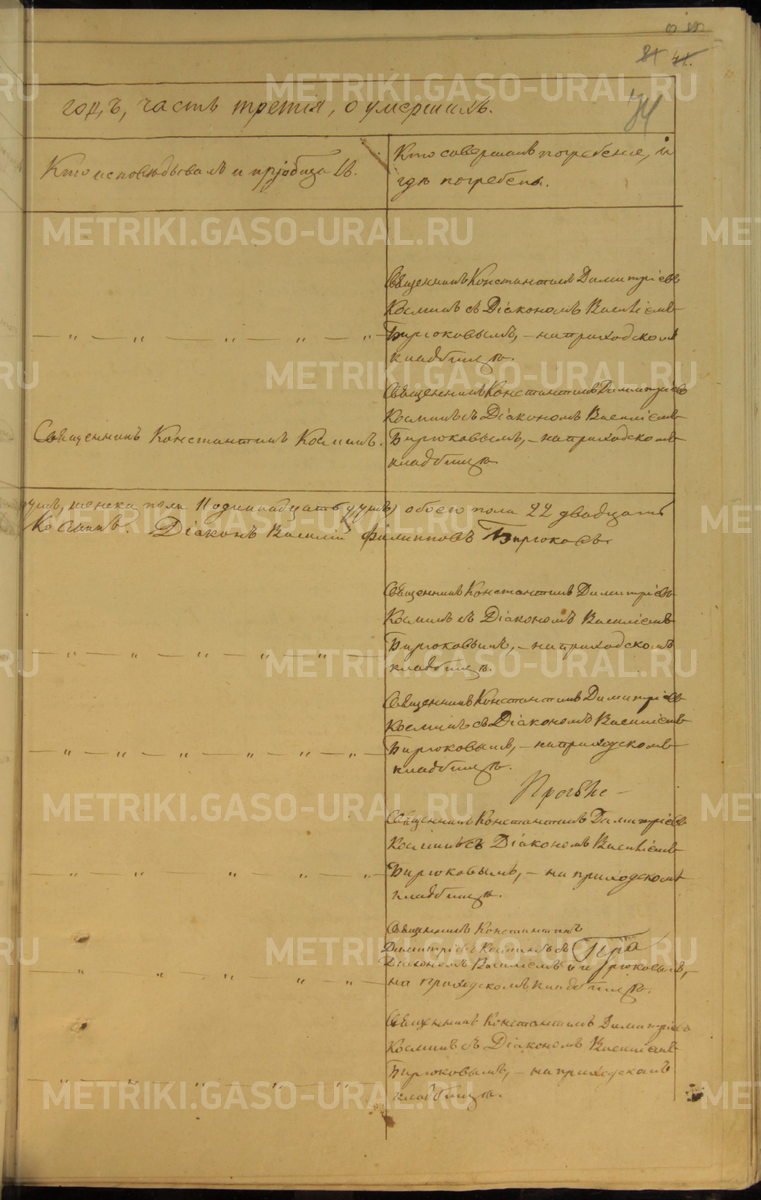 84
годъ, часть третія, о умершихъ.
Кто исповѣдывалъ и пріобщалъ.
Кто совершалъ погребеніе, и
гдѣ погребены.
METRIKI.GASO-URAL.RU
Священникъ Константинъ Димитріевъ
Косминъ съ Діакономъ Василіемъ
— „ — „ — „ — „ —
Бирюковымъ, — на приходскомъ
кладбищѣ.
Священникъ Константинъ Косминъ.
Священникъ Константинъ Димитріевъ
Косминъ съ Діакономъ Василіемъ
Бирюковымъ, — на приходскомъ
кладбищѣ.
душъ, женска пола 11 одиннадцать душъ, обоего пола 22 двадцать
Косминъ. Діаконъ Василій Филипповъ Бирюковъ.
Священникъ Константинъ Димитріевъ
Косминъ съ Діакономъ Василіемъ
— „ — „ — „ — „ — „ —
Бирюковымъ, — на приходскомъ
кладбищѣ.
Священникъ Константинъ Димитріевъ
Косминъ съ Діакономъ Василіемъ
— „ — „ — „ — „ — „ — „ —
Бирюковымъ, — на приходскомъ
кладбищѣ.
Священникъ Константинъ Димитріевъ
Косминъ съ Діакономъ Василіемъ
— „ — „ — „ — „ —
Бирюковымъ, — на приходскомъ
кладбищѣ.
Священникъ Константинъ
Димитріевъ Косминъ съ
Діакономъ Василіемъ Бирюковымъ,
— „ — „ — „ — „ — „ —
на приходскомъ кладбищѣ.
Священникъ Константинъ Димитріевъ
Косминъ съ Діакономъ Василіемъ
— „ — „ — „ — „ — „ —
Бирюковымъ, — на приходскомъ
кладбищѣ.